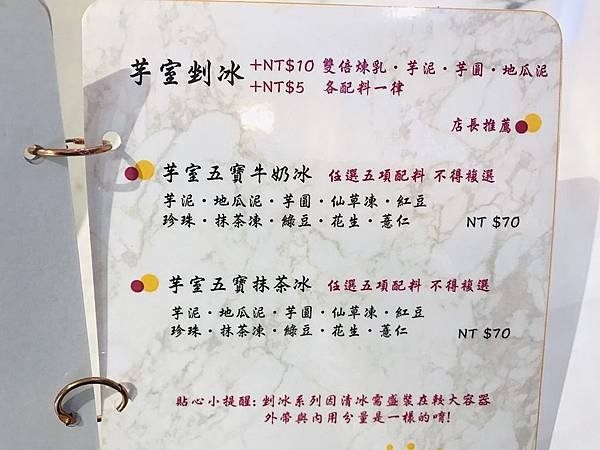 芋室剉冰 +NT$10 雙倍煉乳・芋泥・芋圓・地瓜泥
+NT$5 各配料一律
店長推薦
芋室五寶牛奶冰 任選五項配料 不得複選
芋泥・地瓜泥・芋圓・仙草凍・紅豆
珍珠・抹茶凍・綠豆・花生・薏仁 NT $70
芋室五寶抹茶冰 任選五項配料 不得複選
芋泥・地瓜泥・芋圓・仙草凍・紅豆
珍珠・抹茶凍・綠豆・花生・薏仁 NT $70
貼心小提醒: 剉冰系列因清冰需盛裝在較大容器
外帶與內用份量是一樣的唷!